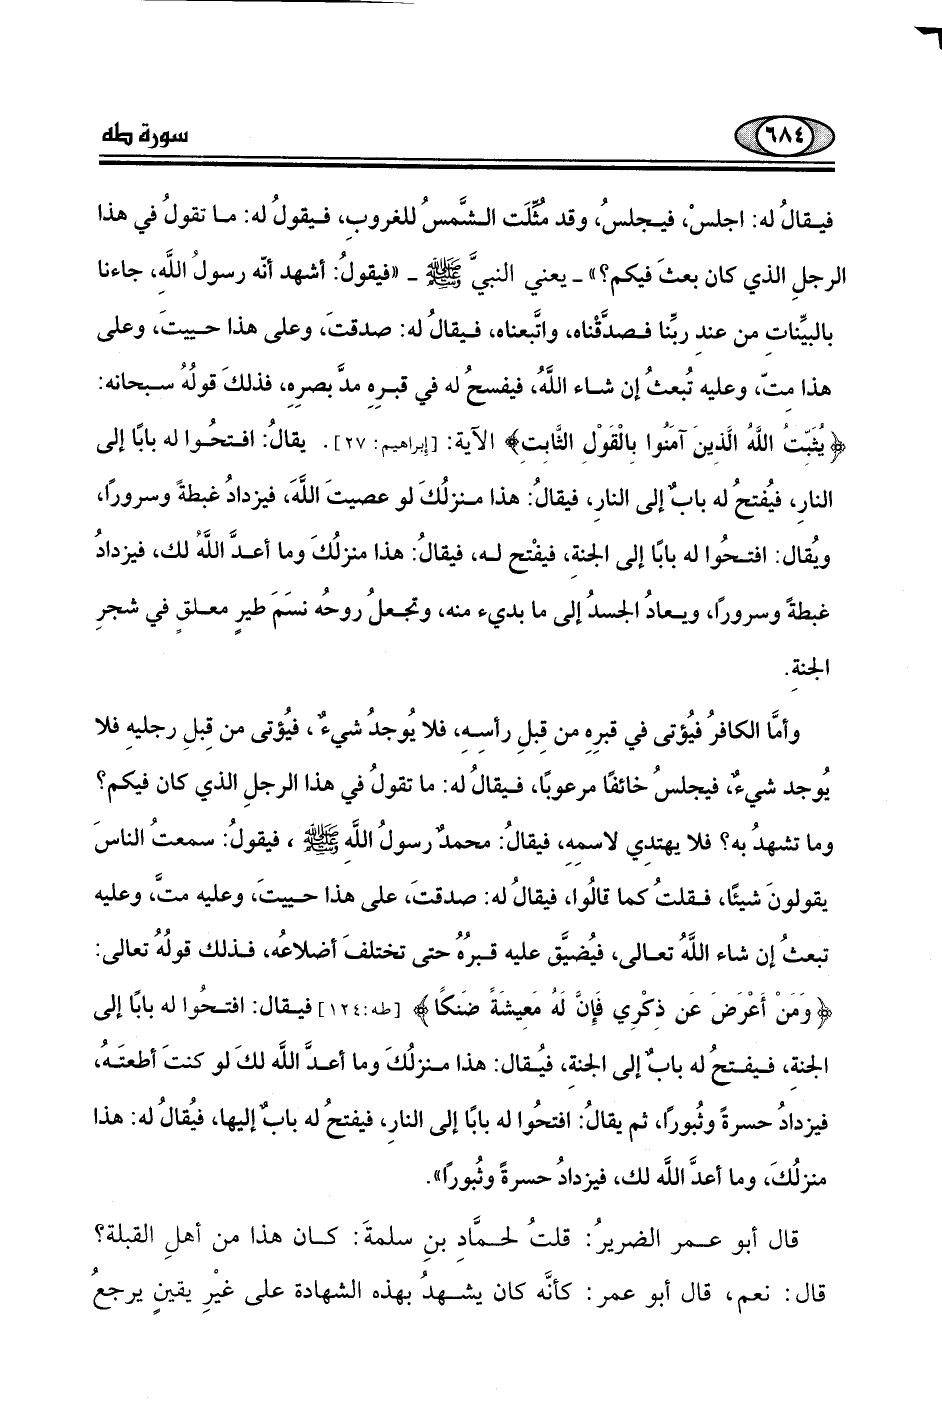 ٦٨٤
سورة طه
فيقالُ له: اجلسْ، فيجلسُ، وقد مُثِّلَت الشَّمسُ للغروبِ، فيقولُ له: ما تقولُ في هذا
الرجلِ الذي كان بعثَ فيكم؟» ـ يعني النبيَّ ﷺ ـ «فيقولُ: أشهد أنّه رسولُ اللَّهِ، جاءنا
بالبيِّنات من عندِ ربِّنا فصدَّقْناه، واتَّبعناه، فيقالُ له: صدقتَ، وعلى هذا حييتَ، وعلى
هذا متّ، وعليه تُبعثُ إن شاء اللَّهُ، فيفسحُ له في قبرِهِ مدَّ بصرِهِ، فذلكَ قولُهُ سبحانه:
﴿يُثَبِّتُ اللَّهُ الَّذِينَ آمَنُوا بِالْقَوْلِ الثَّابِتِ﴾ الآية: [إبراهيم: ٢٧]. يقالُ: افتحُوا له بابًا إلى
النارِ، فيُفتحُ له بابٌ إلى النارِ، فيقالُ: هذا منزلُكَ لو عصيتَ اللَّهَ، فيزدادُ غبطةً وسرورًا،
ويُقال: افتحُوا له بابًا إلى الجنةِ، فيفْتح له، فيقالُ: هذا منزلُكَ وما أعدَّ اللَّهُ لك، فيزدادُ
غبطةً وسرورًا، ويعادُ الجسدُ إلى ما بديء منه، وتجعلُ روحُه نسَمَ طيرٍ معلقٍ في شجرِ
الجنةِ.
وأمَّا الكافرُ فيُؤتى في قبرِهِ من قبلِ رأسِهِ، فلا يُوجدُ شيءٌ، فيُؤتى من قبلِ رجليهِ فلا
يُوجد شيءٌ، فيجلسُ خائفًا مرعوبًا، فيقالُ له: ما تقولُ في هذا الرجلِ الذي كان فيكم؟
وما تشهدُ به؟ فلا يهتدِي لاسمِهِ، فيقالُ: محمدٌ رسولُ اللَّهِ ﷺ، فيقولُ: سمعتُ الناسَ
يقولونَ شيئًا، فقلتُ كما قالُوا، فيقالُ له: صدقتَ، على هذا حييتَ، وعليه متَّ، وعليه
تبعثُ إن شاء اللَّهُ تعالى، فيُضيَّق عليه قبرُهُ حتى تختلفَ أضلاعُه، فذلك قولُهُ تعالى:
﴿وَمَنْ أَعْرَضَ عَن ذِكْرِي فَإِنَّ لَهُ مَعِيشَةً ضَنكًا﴾ [طه:١٢٤] فيقال: افتحُوا له بابًا إلى
الجنة، فيفتحُ له بابٌ إلى الجنةِ، فيُقال: هذا منزلُكَ وما أعدَّ اللَّه لكَ لو كنتَ أطعتَهُ،
فيزدادُ حسرةً وثُبورًا، ثم يقالُ: افتحُوا له بابًا إلى النارِ، فيفتحُ له بابٌ إليها، فيُقالُ له: هذا
منزلُكَ، وما أعدَّ اللَّه لك، فيزدادُ حسرةً وثُبورًا».
قال أبو عمر الضريرُ: قلتُ لحمَّادِ بنِ سلمةَ: كان هذا من أهلِ القبلة؟
قال: نعم، قال أبو عمر: كأنَّه كان يشهدُ بهذه الشهادة على غيْرِ يقينٍ يرجعُ